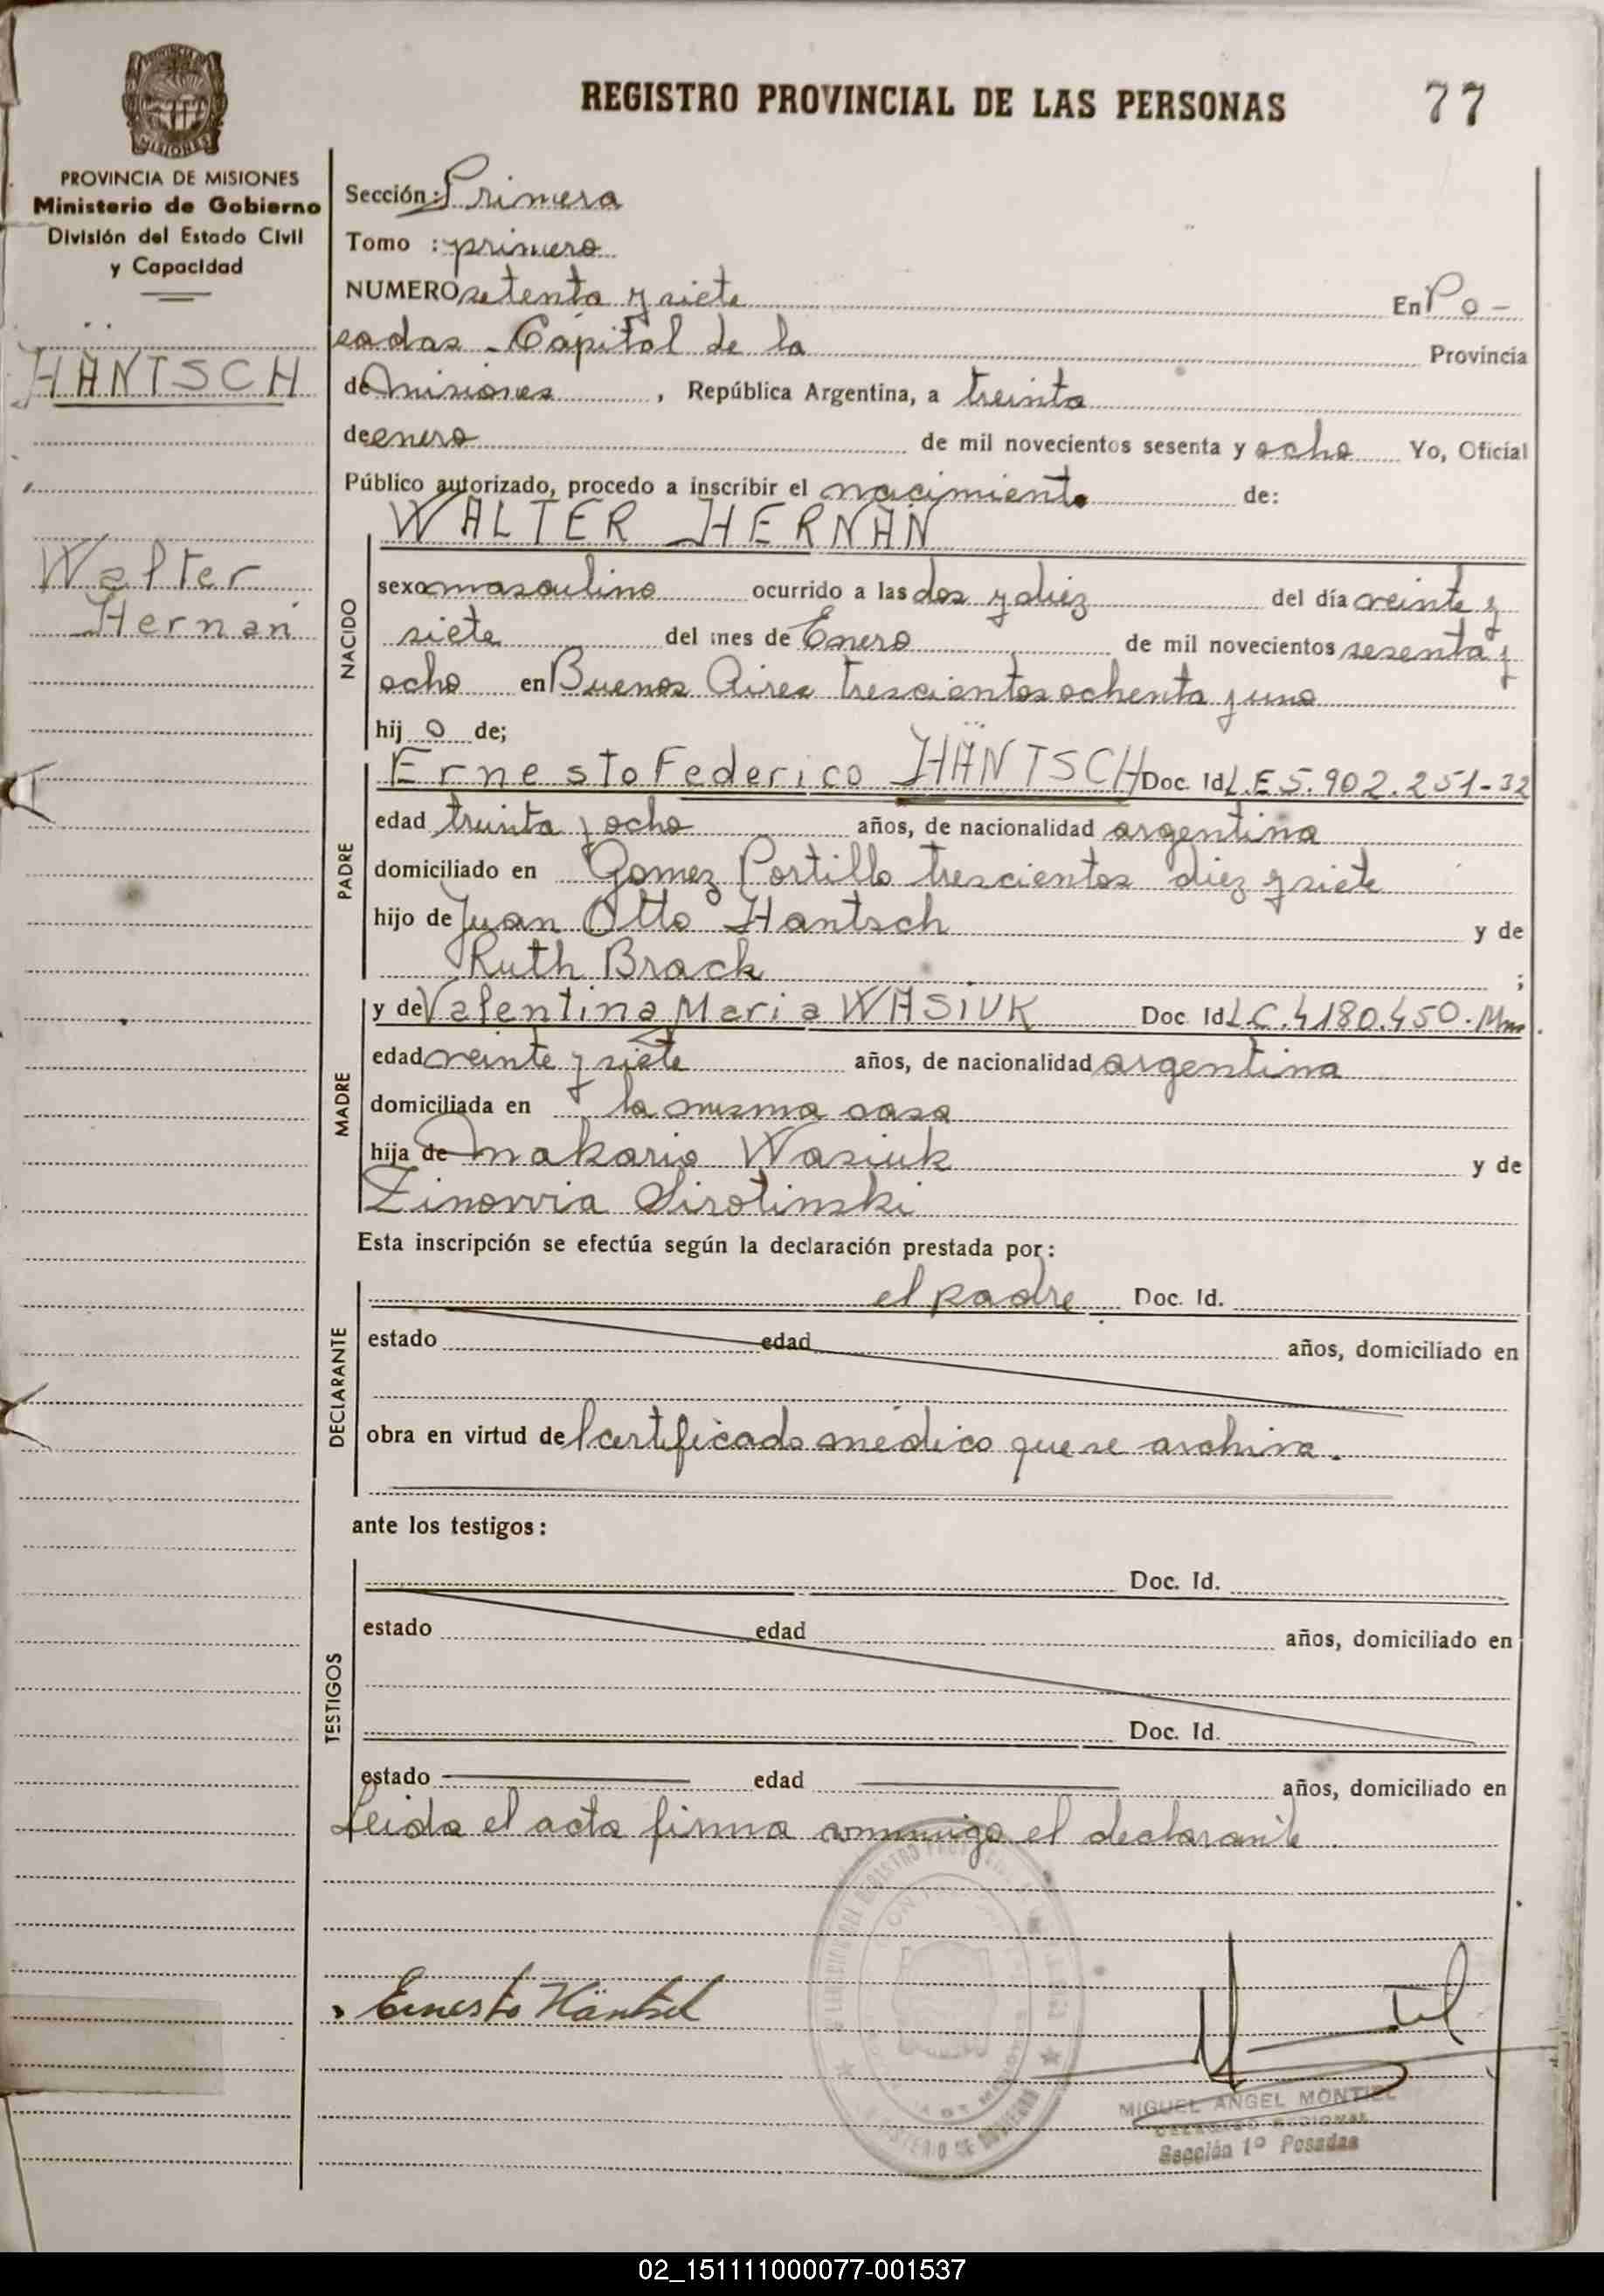 REGISTRO PROVINCIAL DE LAS PERSONAS 77
MISIONES
PROVINCIA DE MISIONES
Ministerio de Gobierno
División del Estado Civil
y Capacidad
HÄNTSCH
Walter
Hernan
Sección: Primera
Tomo : primero
NUMERO setenta y siete En Po-
sadas - Capital de la Provincia
de Misiones , República Argentina, a treinta
de enero de mil novecientos sesenta y ocho Yo, Oficial
Público autorizado, procedo a inscribir el nacimiento de:
NACIDO
WALTER HERNAN
sexo masculino ocurrido a las dos y diez del día veinte y
siete del mes de Enero de mil novecientos sesenta y
ocho en Buenos Aires trescientos ochenta y uno
hij o de;
PADRE
Ernesto Federico HÄNTSCH Doc. Id L.E 5.902.251-32
edad treinta y ocho años, de nacionalidad argentina
domiciliado en Gomez Portillo trescientos diez y siete
hijo de Juan Otto Hantsch y de
Ruth Brack ;
MADRE
y de Valentina Maria WASIUK Doc. Id L.C. 4180.450.
edad veinte y siete años, de nacionalidad argentina
domiciliada en la misma casa
hija de Makario Wasiuk y de
Zinovvia Sirotinski
Esta inscripción se efectúa según la declaración prestada por:
DECLARANTE
el padre Doc. Id.
estado edad años, domiciliado en
obra en virtud del certificado médico que se archiva.
ante los testigos:
TESTIGOS
Doc. Id.
estado edad años, domiciliado en
Doc. Id.
estado edad años, domiciliado en
Leida el acta firma conmigo el declarante
Ernesto Häntsch
MIGUEL ANGEL MONTIEL
DELEGADO REGIONAL
Sección 1º Posadas
02_151111000077-001537